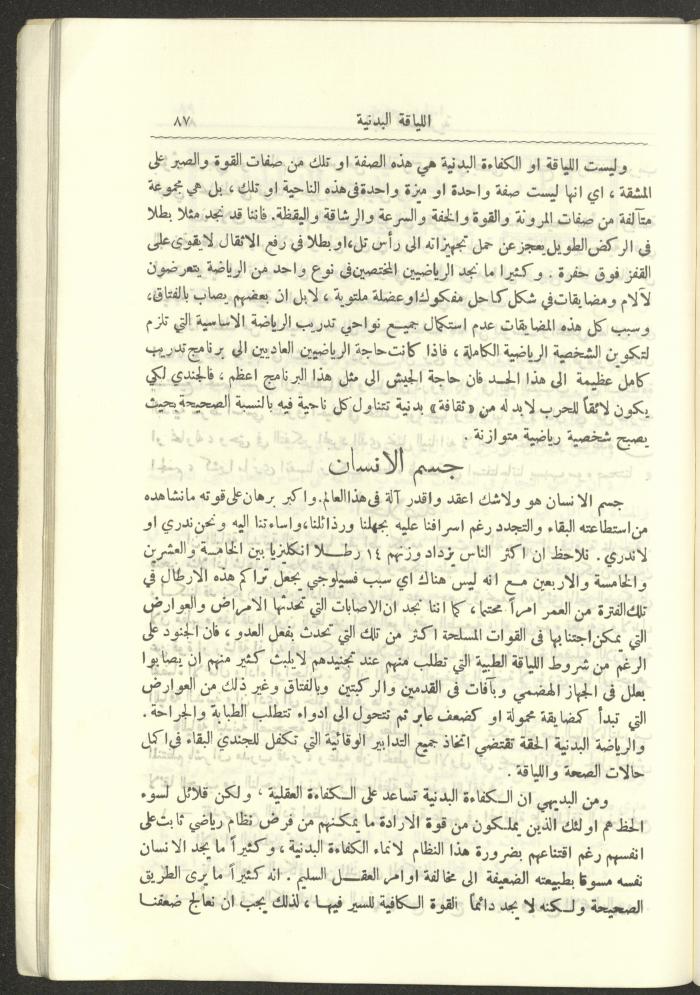 اللياقة البدنية ٨٧
وليست اللياقة او الكفاءة البدنية هي هذه الصفة او تلك من صفات القوة والصبر على
المشقة ، اي انها ليست صفة واحدة او ميزة واحدة في هذه الناحية او تلك ، بل هي مجموعة
متآلفة من صفات المرونة والقوة والخفة والسرعة والرشاقة واليقظة. فاننا قد نجد مثلا بطلا
في الركض الطويل يعجز عن حمل تجهيزاته الى رأس تل، او بطلا في رفع الاثقال لا يقوى على
القفز فوق حفرة . وكثيرا ما نجد الرياضيين المختصين في نوع واحد من الرياضة يتعرضون
لآلام ومضايقات في شكل كاحل مفكوك او عضلة ملتوية ، لا بل ان بعضهم يصاب بالفتاق،
وسبب كل هذه المضايقات عدم استكمال جميع نواحي تدريب الرياضة الاساسية التي تلزم
لتكوين الشخصية الرياضية الكاملة ، فاذا كانت حاجة الرياضيين العاديين الى برنامج تدريب
كامل عظيمة الى هذا الحد فان حاجة الجيش الى مثل هذا البرنامج اعظم ، فالجندي لكي
يكون لائقاً للحرب لا بد له من «ثقافة» بدنية تتناول كل ناحية فيه بالنسبة الصحيحة بحيث
يصبح شخصية رياضية متوازنة .
جسم الانسان
جسم الانسان هو ولاشك اعقد واقدر آلة في هذا العالم. واكبر برهان على قوته ما نشاهده
من استطاعته البقاء والتجدد رغم اسرافنا عليه بجهلنا ورذائلنا، واساءتنا اليه ونحن ندري او
لا ندري . تلاحظ ان اكثر الناس يزداد وزنهم ١٤ رطلا انكليزيا بين الخامسة والعشرين
والخامسة والاربعين مع انه ليس هناك اي سبب فسيلوجي يجعل تراكم هذه الارطال في
تلك الفترة من العمر امراً محتما ، كما اننا نجد ان الاصابات التي تحدثها الامراض والعوارض
التي يمكن اجتنابها في القوات المسلحة اكثر من تلك التي تحدث بفعل العدو ، فان الجنود على
الرغم من شروط اللياقة الطبية التي تطلب منهم عند تجنيدهم لا يلبث كثير منهم ان يصابوا
بعلل في الجهاز الهضمي وبآفات في القدمين والركبتين وبالفتاق وغير ذلك من العوارض
التي تبدأ كمضايقة محمولة او كضعف عابر ثم تتحول الى ادواء تتطلب الطبابة والجراحة .
والرياضة البدنية الحقة تقتضي اتخاذ جميع التدابير الوقائية التي تكفل للجندي البقاء في اكمل
حالات الصحة واللياقة .
ومن البديهي ان الكفاءة البدنية تساعد على الكفاءة العقلية ، ولكن قلائل لسوء
الحظ هم اولئك الذين يملكون من قوة الارادة ما يمكنهم من فرض نظام رياضي ثابت على
انفسهم رغم اقتناعهم بضرورة هذا النظام لانماء الكفاءة البدنية ، وكثيراً ما يجد الانسان
نفسه مسوقا بطبيعته الضعيفة الى مخالفة اوامر العقل السليم . انه كثيراً ما يرى الطريق
الصحيحة ولكنه لا يجد دائماً القوة الكافية للسير فيها ، لذلك يجب ان نعالج ضعفنا